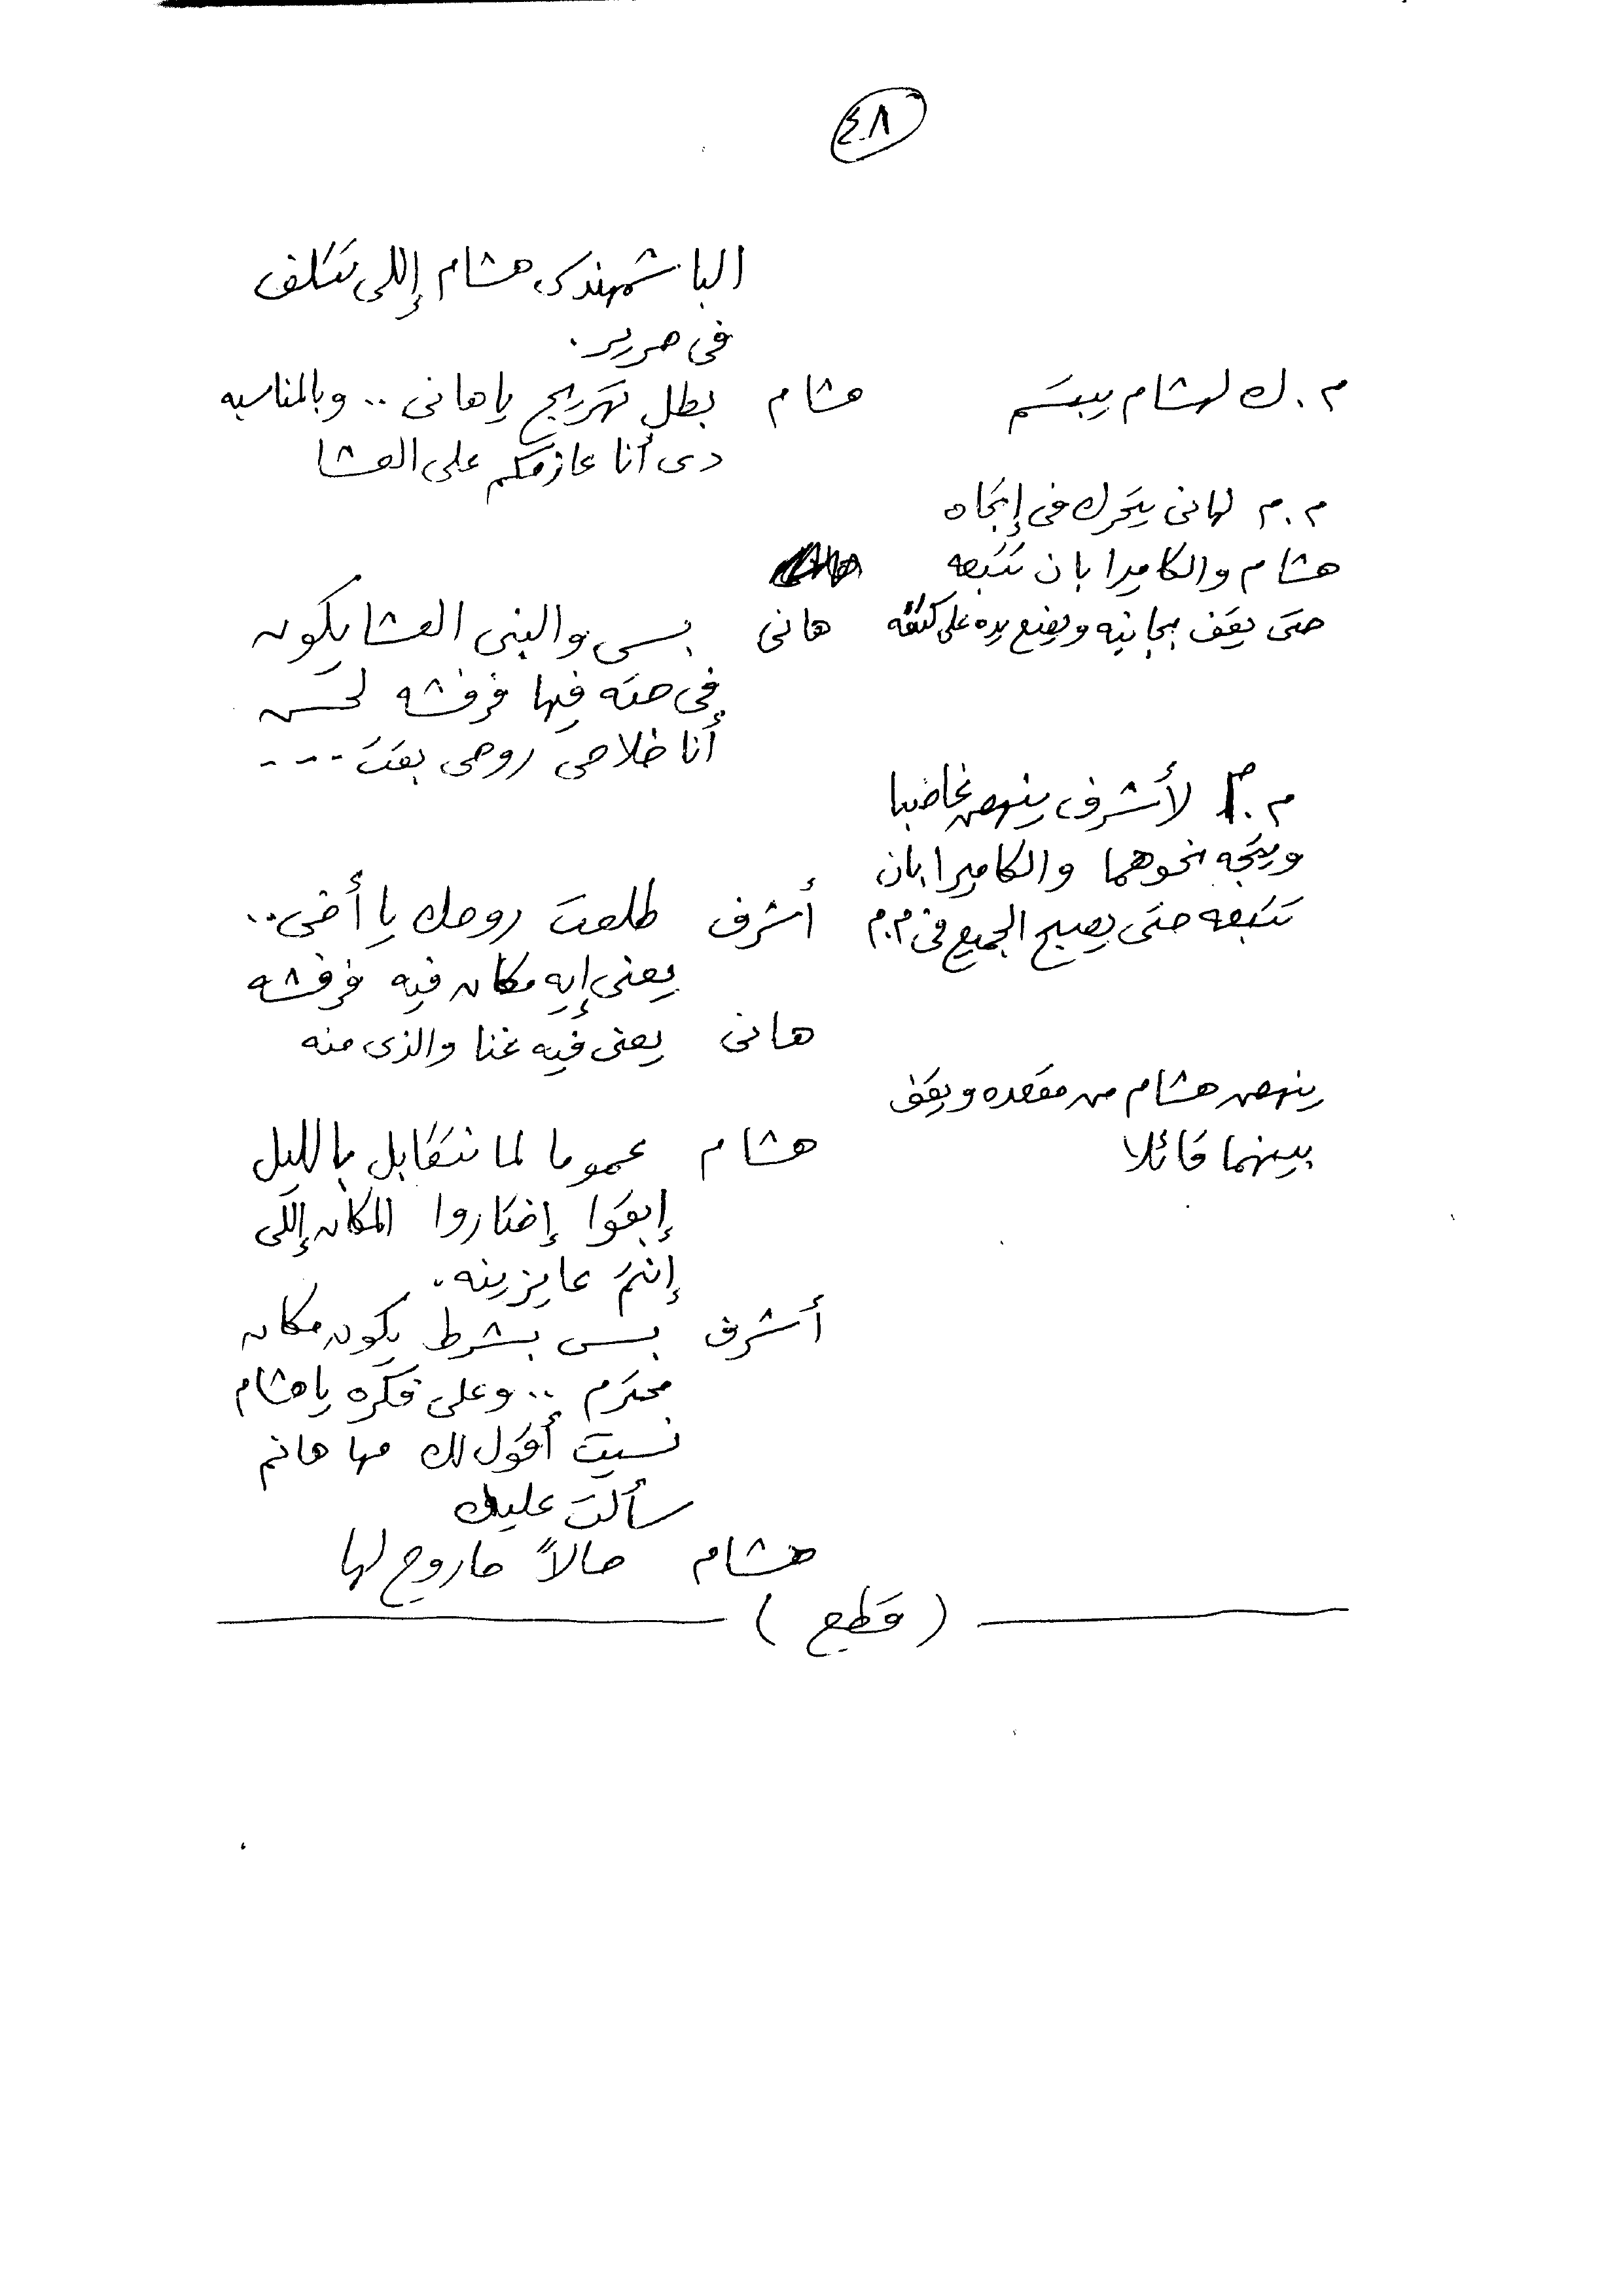 ٤٨
الباشمهندس هشام إللى تتلف
فى حرير.
م.ك لهشام يبتسم
هشام بطل تهريج يا هانى .. وبالمناسبه
دى أنا عازمكم على العشا
م.م لهانى يتحرك فى إتجاه
هشام والكاميرا بان تتبعه
حتى يقف بجانبه ويضع يده على كتفه
هانى بس والنبى العشا يكون
فى حته فيها فرفشه لحسن
أنا خلاص روحى بقت ----
م.م لأشرف ينهض غاضبا
ويتجه نحوهما والكاميرا بان
تتبعه حتى يصبح الجميع فى م.م
أشرف طلعت روحك يا أخى..
يعنى إيه مكان فيه فرفشه
هانى يعنى فيه غنا والذى منه
ينهض هشام من مقعده ويقف
بينهما قائلا
هشام عموما لما نتقابل بالليل
إبقوا إختاروا المكان إللى
إنتم عايزينه.
أشرف بس بشرط يكون مكان
محترم .. وعلى فكره يا هشام
نسيت أقول لك مها هانم
سألت عليك
هشام حالاً حاروح لها
( قطع )